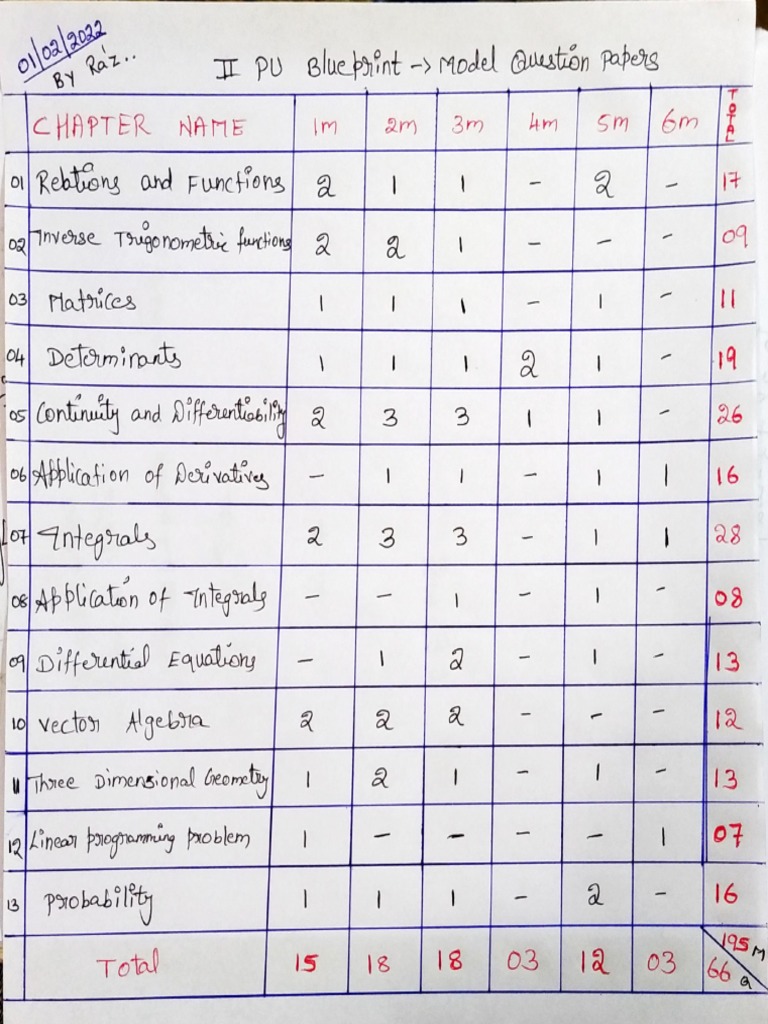 01/02/2022
BY Raz..
II PU Blueprint -> Model Question Papers
CHAPTER NAME 1m 2m 3m 4m 5m 6m TOTAL
01 Relations and Functions 2 1 1 - 2 - 17
02 Inverse Trigonometric functions 2 2 1 - - - 09
03 Matrices 1 1 1 - 1 - 11
04 Determinants 1 1 1 2 1 - 19
05 Continuity and Differentiability 2 3 3 1 1 - 26
06 Application of Derivatives - 1 1 - 1 1 16
07 Integrals 2 3 3 - 1 1 28
08 Application of Integrals - - 1 - 1 - 08
09 Differential Equations - 1 2 - 1 - 13
10 Vector Algebra 2 2 2 - - - 12
11 Three Dimensional Geometry 1 2 1 - 1 - 13
12 Linear programming problem 1 - - - - 1 07
13 Probability 1 1 1 - 2 - 16
Total 15 18 18 03 12 03 195 M
66 Q